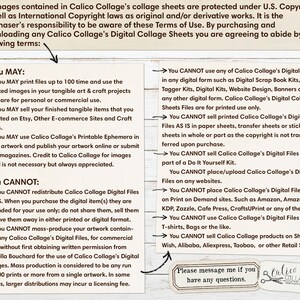 mages contained in Calico Collage's collage sheets are protected under U.S. Copy
ell as International Copyright laws as original and/or derivative works. It is the
haser's responsibility to be aware of these Terms of Use. By purchasing and
nloading any Calico Collage's Digital Collage Sheets you are agreeing to abide by
wing terms:
u MAY:
u MAY print files up to 100 time and use the
ed images in your tangible art & craft projects
are for personal or commercial use.
u MAY sell your finished tangible items that you
ted on Etsy, Other E-commerce Sites and Craft
.
u MAY use Calico Collage's Printable Ephemera in
artwork and publish your artwork online or submit
magazines. Credit to Calico Collage for images
is not necessary but always appreciated.
CANNOT:
u CANNOT redistribute Calico Collage Digital Files
S. When you purchase the digital item(s) they are
ded for your use only; do not share them, sell them
ve them away in either printed or digital format.
u CANNOT mass-produce your artwork contain-
any Calico Collage's Digital Files, for commercial
without first obtaining written permission from
ila Bouchard for the use of Calico Collage's Digital
ages. Mass production is considered to be any run
00 prints or more from a single artwork. In some
s, larger distributions may incur a licensing fee.
You CANNOT use any of Calico Collage's Digital
in any digital form such as Digital Scrap Book Kits,
Tagger Kits, Digital Kits, Website Design, Banners or
any other digital form. Calico Collage's Digital Col
Sheets Files are for printed use only.
You CANNOT sell printed Calico Collage's Digital
Files AS IS in paper sheets, transfer sheets or stick
sheets in whole or part as the copyright is not tran
ferred upon purchase.
You CANNOT sell Calico Collage's Digital Files
part of a Do It Yourself Kit.
You CANNOT place/upload Calico Collage's Dig
Files on any websites.
You CANNOT place Calico Collage's Digital Files
on Print on Demand sites. Such as Amazon, Amaz
KDP, Zazzle, Cafe Press, CraftsuPrint or any of the
You CANNOT use Calico Collage's Digital Files
T-shirts, Bags or the like.
You CANNOT sell Calico Collage products on Sh
Wish, Alibaba, Aliexpress, Taobao, or other Retail S
Please message me if you
have any questions.
Calico